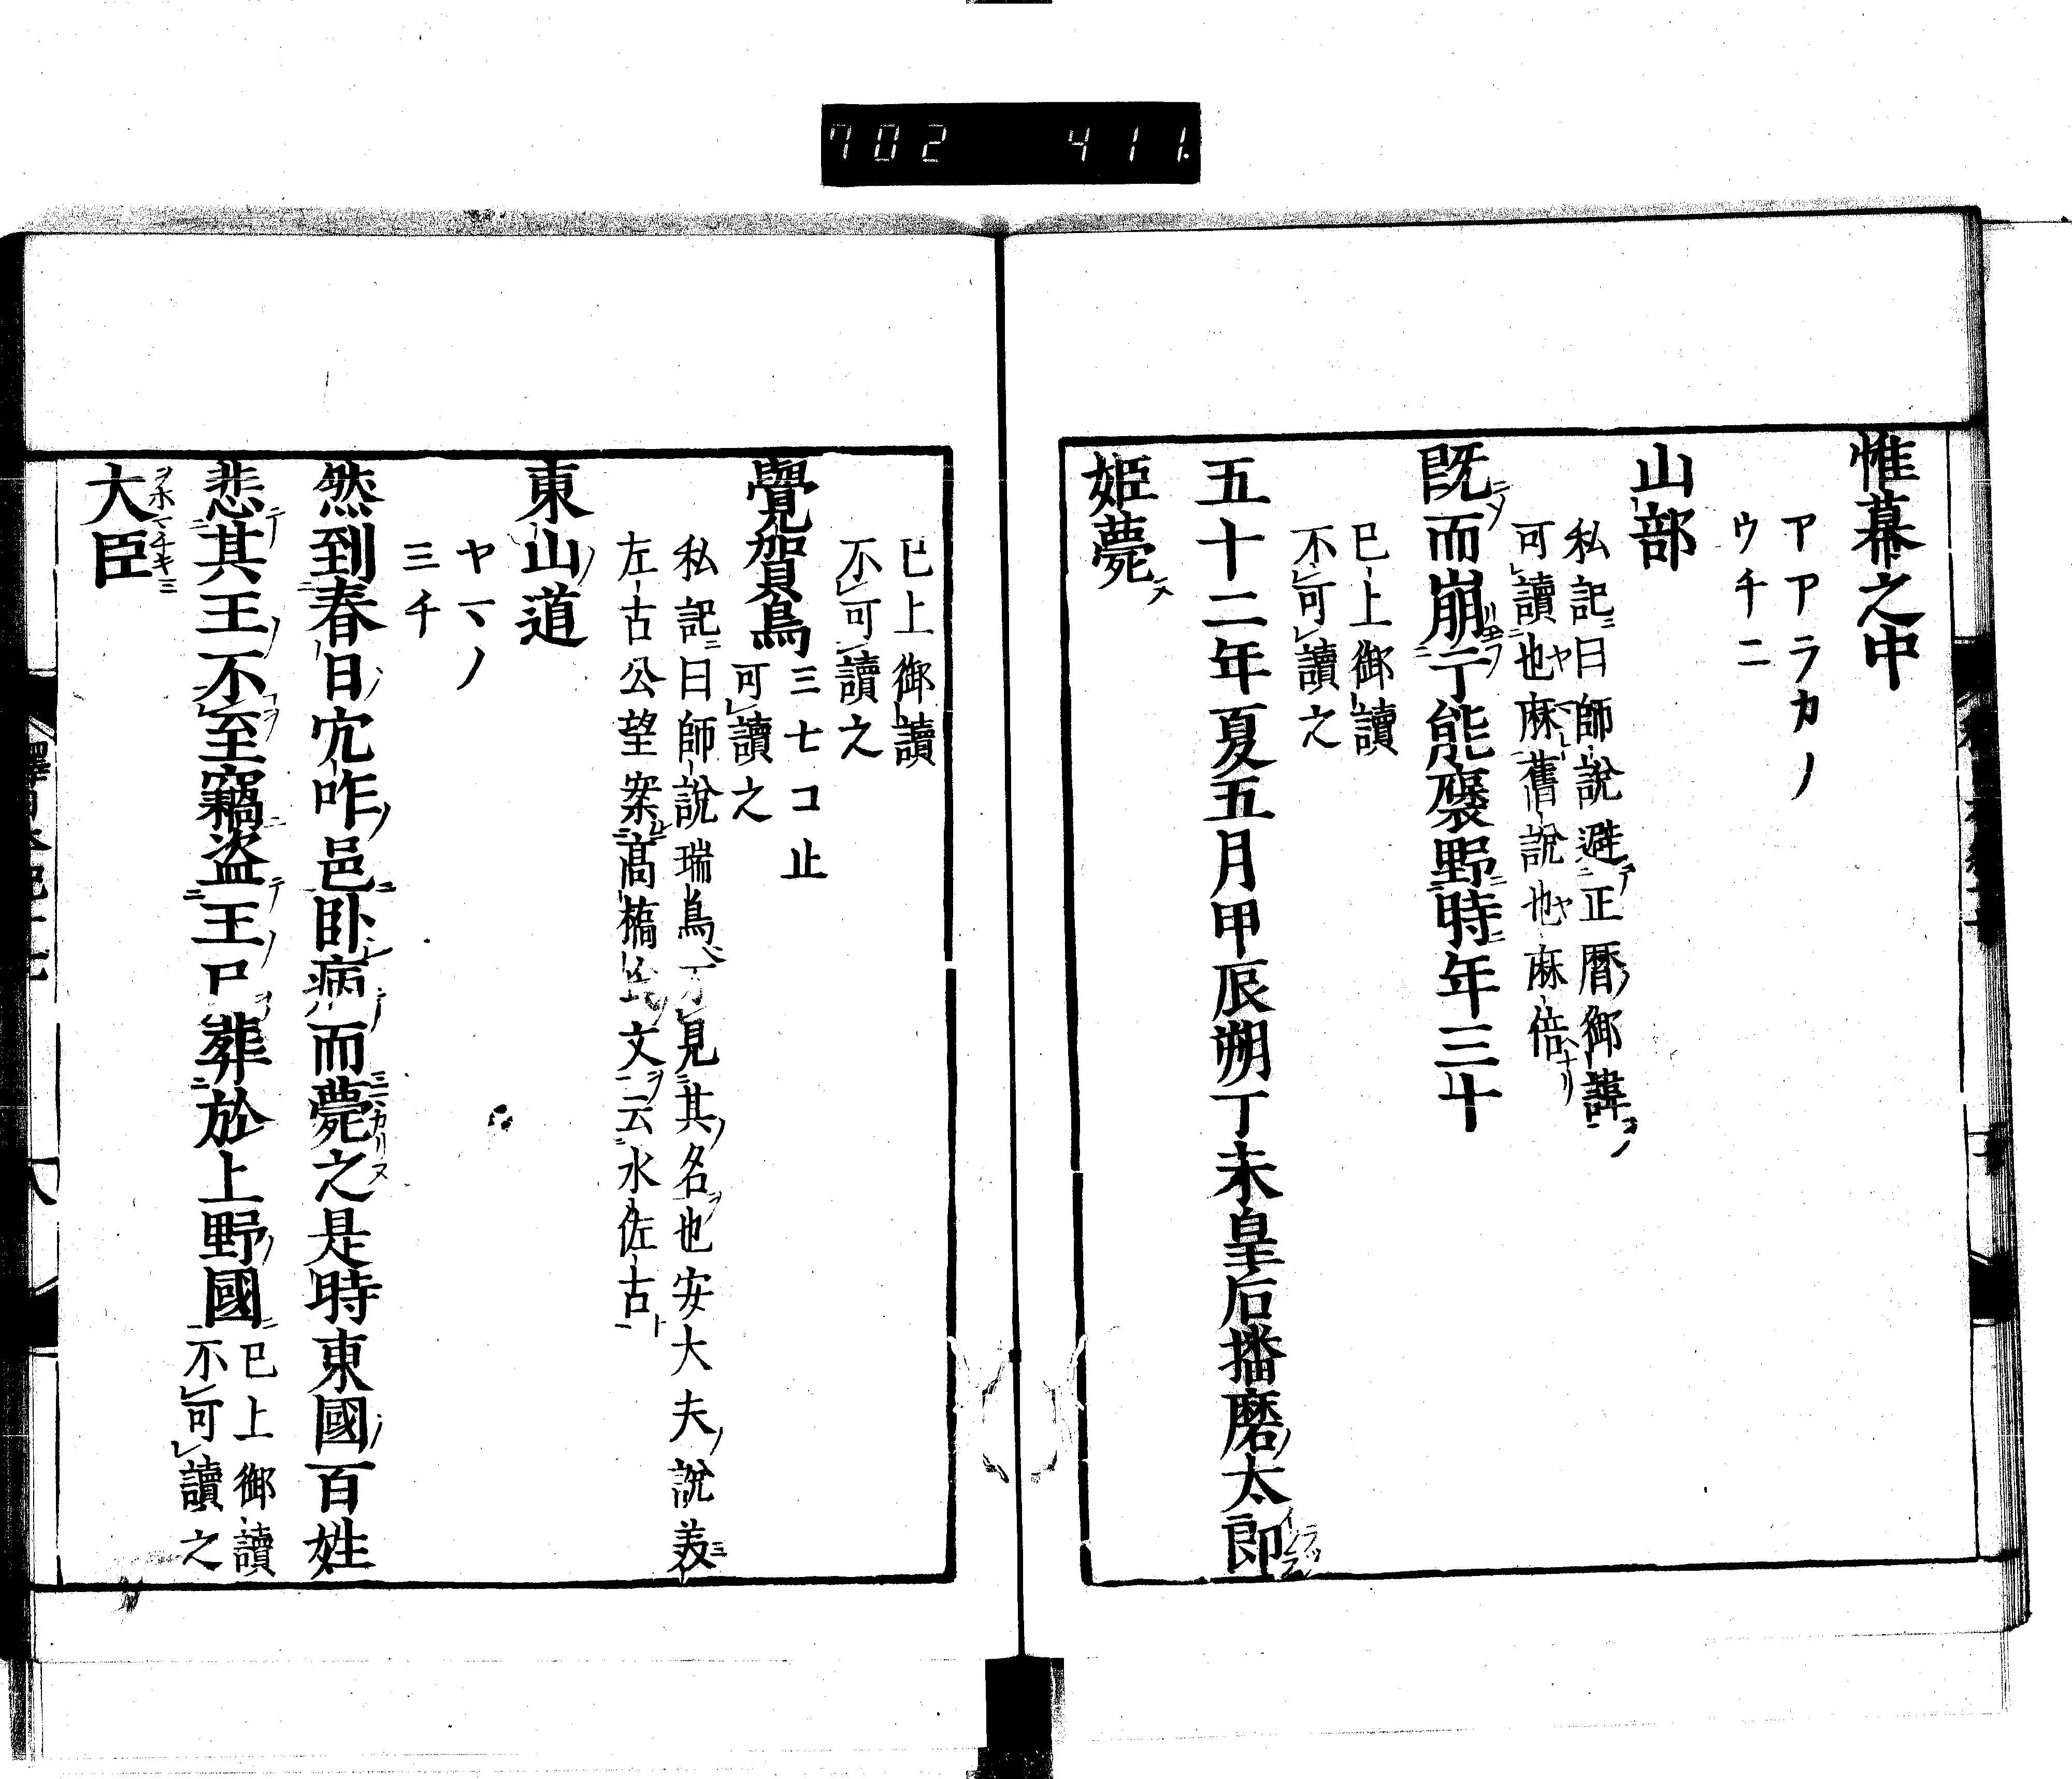 702 411.
惟幕之中
アアラカノ
ウチニ
山部
私記曰師說避正曆御諱
可讀也麻舊說也麻倍
既而崩于能褒野時年三十
已上御讀
不可讀之
五十二年夏五月甲辰朔丁未皇后播磨太郎
姫薨
已上御讀
不可讀之
覺賀鳥
三七コ止
可讀之
私記曰師說瑞鳥不見其名也安大夫說美
左古公望案高橋氏文云水佐古
東山道
ヤマノ
三チ
然到春日穴咋邑卧病而薨之是時東國百姓
悲其王不至竊盗王尸葬於上野國
已上御讀
不可讀之
大臣